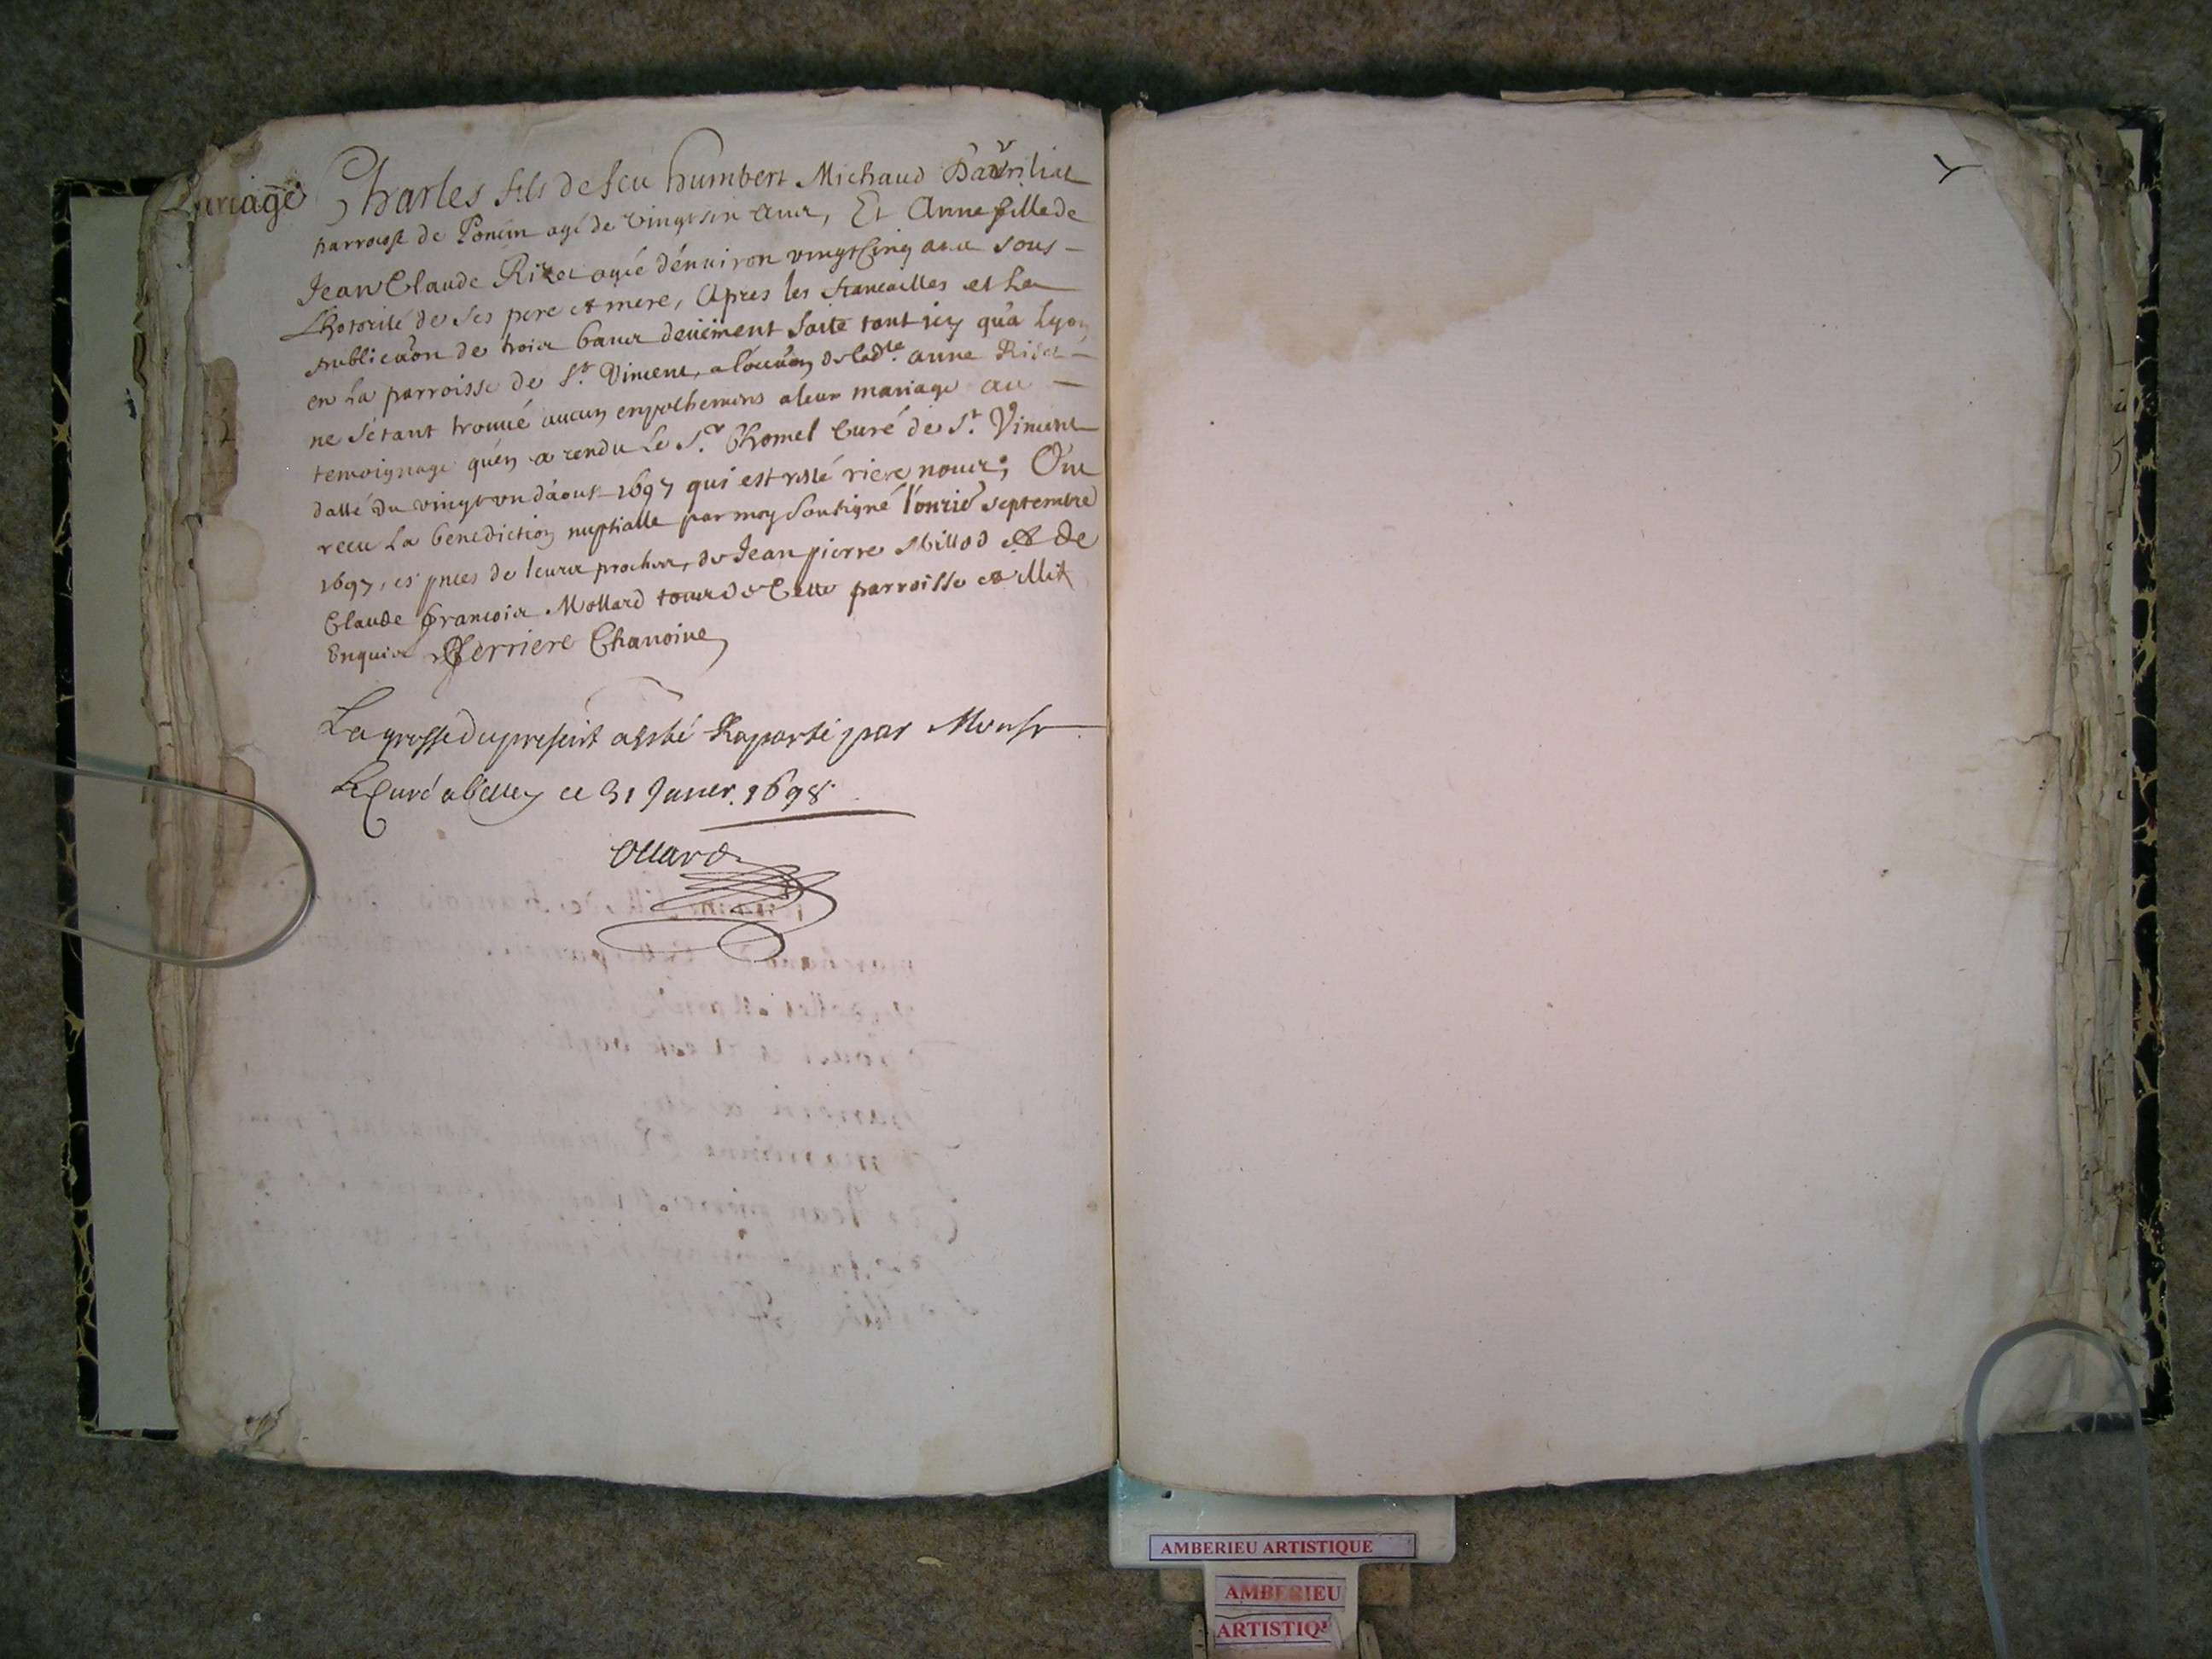 Mariage Charles fils de feu humbert Michaud Davriliat
parroisse de Poncin agé de vingt six ans, Et Anne fille de
Jean Claude Rizet agée d'environ vingt Cinq ans sous
Lhotorité de ses pere et mere, Apres les fiancailles et La
publica͠on de trois bans deüement faite tant icy qu'a Lyon
en La parroisse de St. Vincent, de ladte. anne Rizet
ne s'étant trouué aucun enpechemens a leur mariage au
temoignage qu'en a rendu Le Sr. Chomel Curé de St. Vincent
datté du vingt vn d'aoust 1697 qui est resté riere nous; Ont
receu La benediction nuptialle par moy soussigné l'onzie septembre
1697, es pnces de leurs proches, de Jean pierre Millod & de
Claude francois Mollard tous de Cette parroisse et illit
Enquis Ferriere Chanoine
La grosse du present a esté Raporté par Monsr
Le Curé a belley ce 31 Janer. 1698
AMBERIEU ARTISTIQUE
AMBERIEU
ARTISTIQ